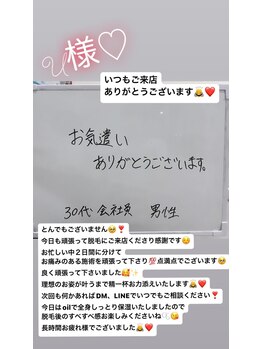 U様♡
いつもご来店
ありがとうございます🙇‍♀️❤️
お気遣い
ありがとうございます。
30代 会社員 男性
とんでもございません🥹❣️
今日も頑張って脱毛にご来店くださり感謝です☺️
お忙しい中2日間に分けて
お痛みのある施術を頑張って下さり💯点満点でございます🥹
良く頑張って下さいました🥰✨
理想のお姿が叶うまで精一杯お力添えいたします🙇‍♀️❤️
次回も何かあればDM、LINEでいつでもご相談ください❣️
今日はoilで全身しっかり保湿いたしましたので
脱毛後のすべすべ感お楽しみくださいね🫧🤍
長時間お疲れ様でございました🙇‍♀️❤️